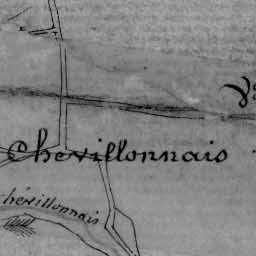 Chevillonnais
hévillonnais